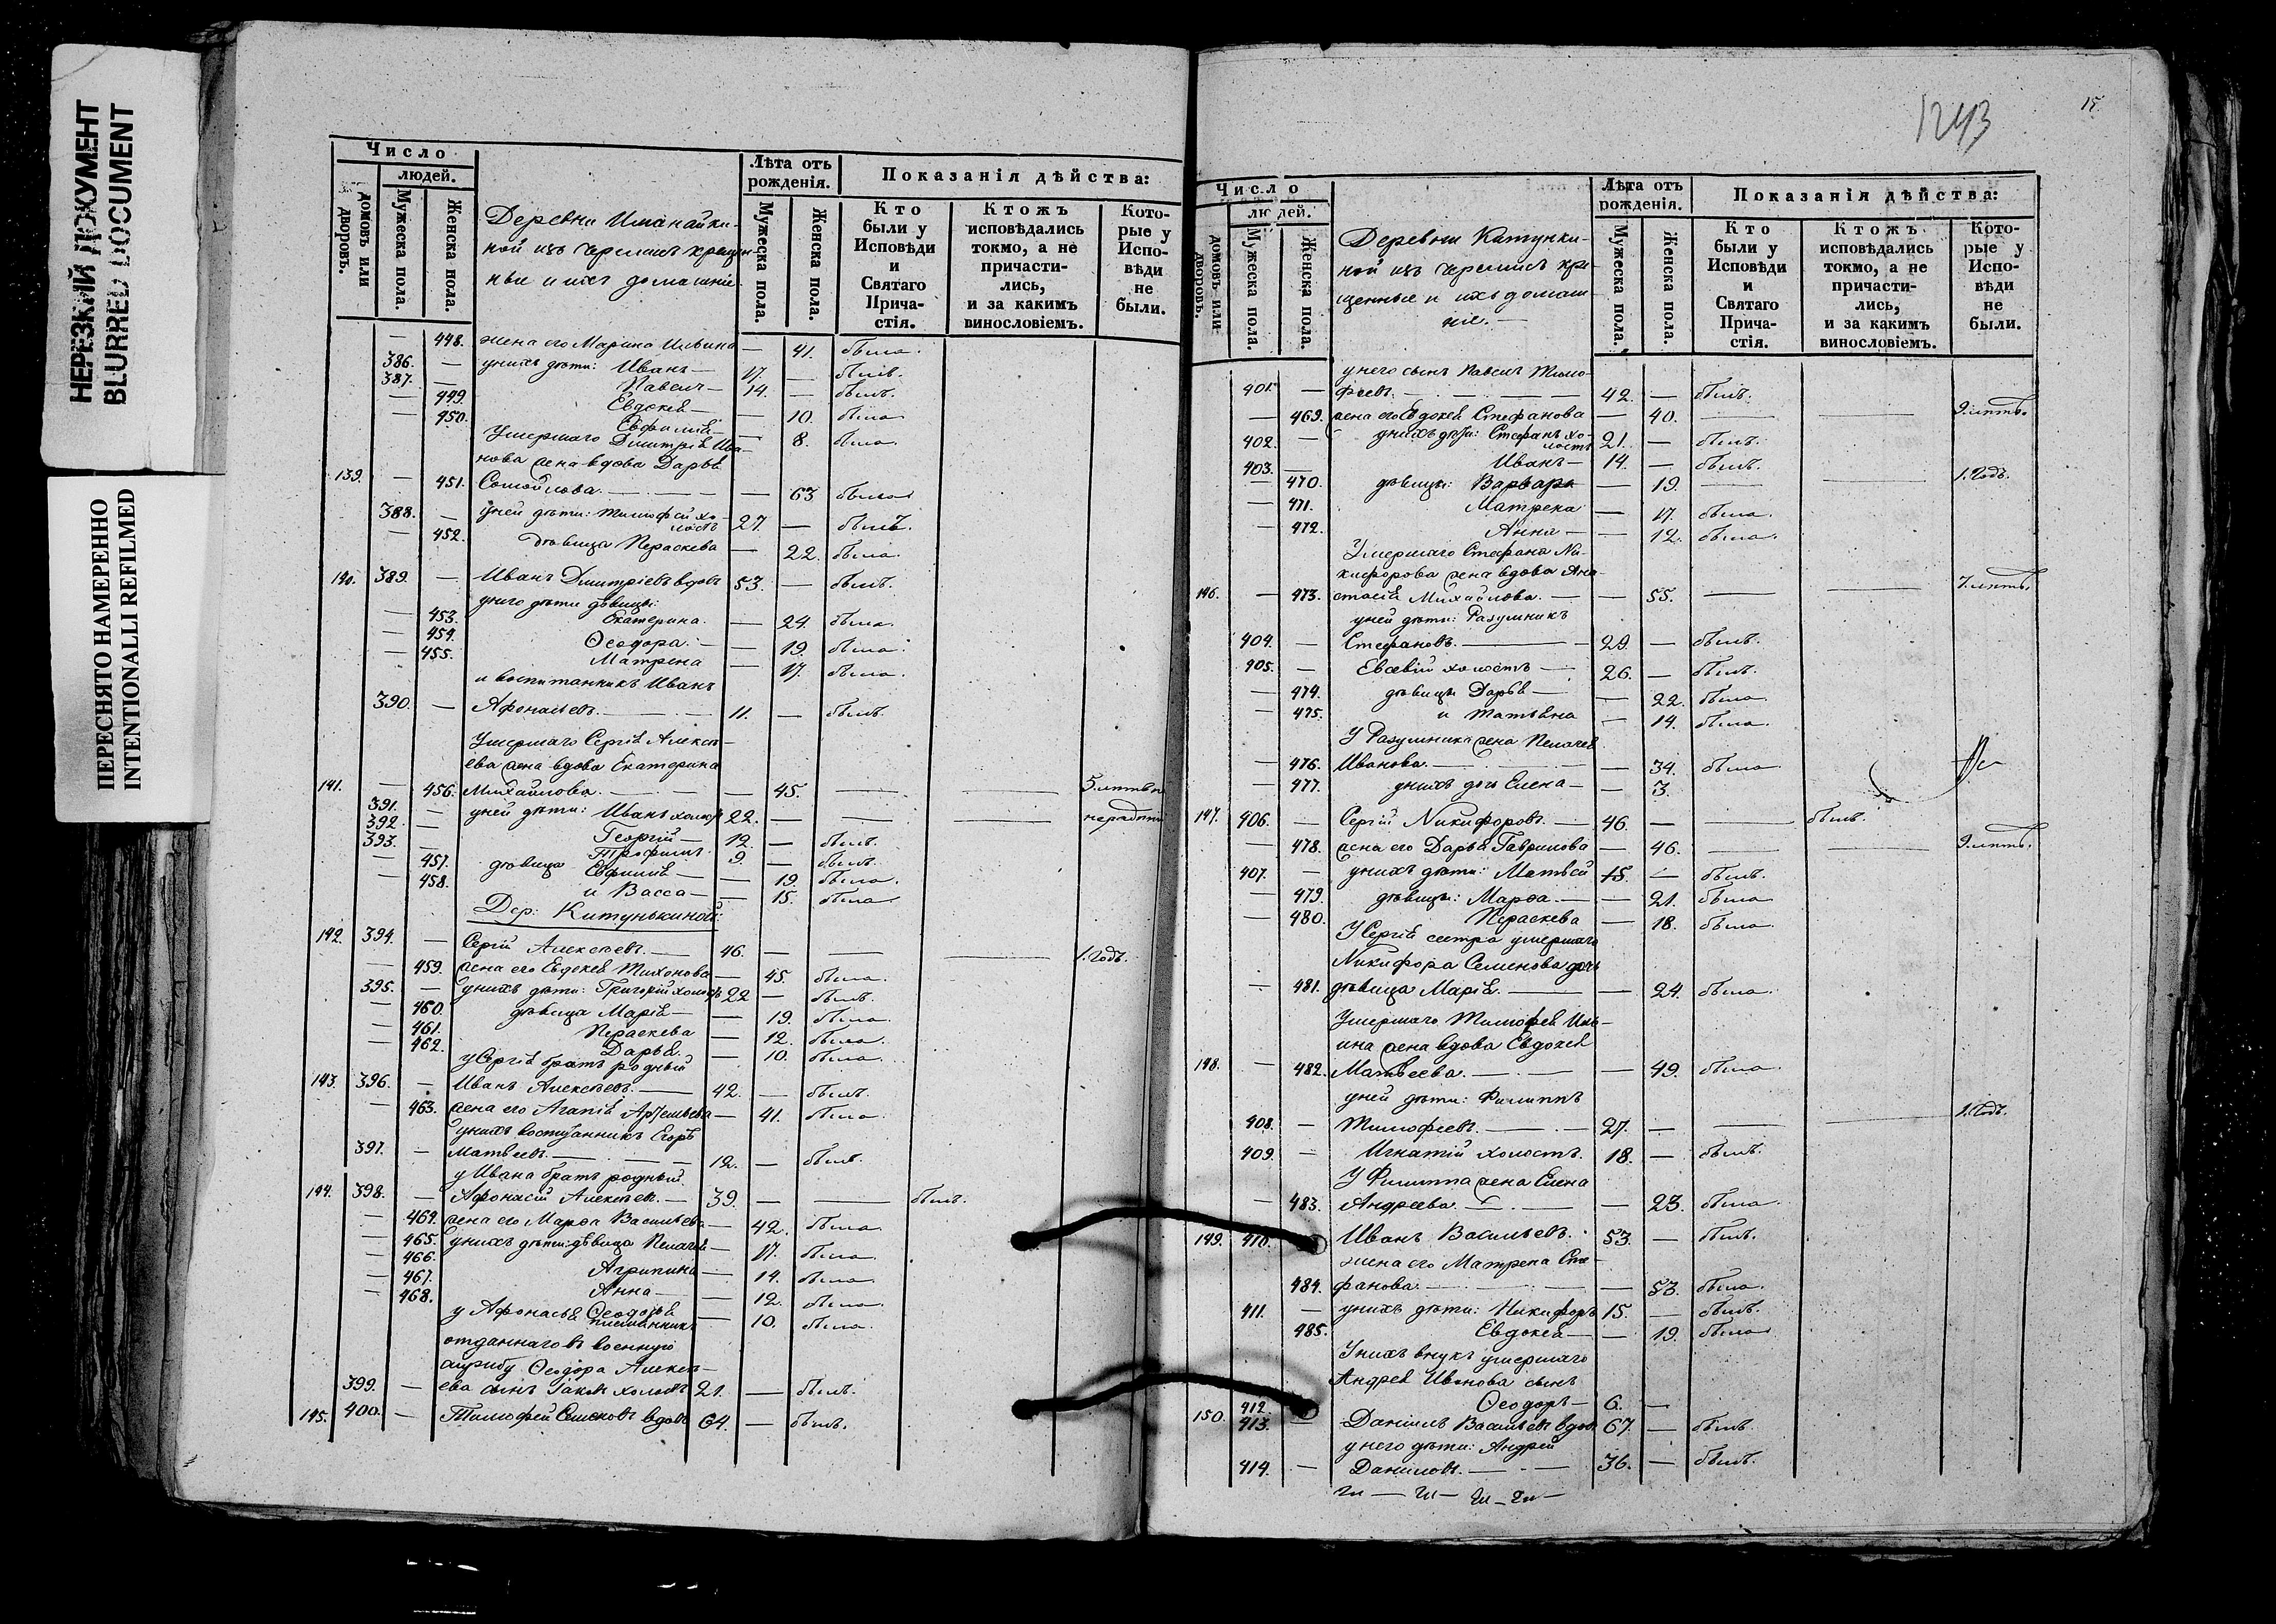 НЕРЕЗКИЙ ДОКУМЕНТ
BLURRED DOCUMENT
ПЕРЕСНЯТО НАМЕРЕННО
INTENTIONALLI REFILMED
Число
людей.
домовъ или дворовъ.
Мужеска пола.
Женска пола.
Деревни Иманайки-
ной изъ черемисъ крещен-
ные и ихъ домашніе
Лѣта отъ рожденія.
Мужеска пола.
Женска пола.
Показанія дѣйства:
Кто были у Исповѣди и Святаго Причастія.
Ктожъ исповѣдались токмо, а не причастились, и за какимъ винословіемъ.
Которые у Исповѣди не были.
— 448. жена его Марина Ильина — 41. была.
386. — у нихъ дѣти: Иванъ — 17. — былъ.
387. — Павелъ — 14. — былъ.
— 449. Евдокея — — 10. была
— 450. Евфимія — — 8. была.
Умершаго Димитрія Ива-
нова жена вдова Дарья
139. — 451. Самойлова. — — 63 была
388. — у ней дѣти: Тимофей хо-
лостъ 27. — былъ.
— 452. дѣвица Параскева — 22. была.
140. 389. — Иванъ Димитріевъ вдовъ 53. — былъ.
у него дѣти дѣвицы:
— 453. Екатерина. — 24. была.
— 454. Ѳеодора. — — 19. была.
— 455. Матрена — 17. была.
и воспитанникъ Иванъ
390. — Афонасьевъ. — 11. — былъ.
Умершаго Сергія Алексѣ-
ева жена вдова Екатерина
141. — 456. Михайлова. — — 45. — — 5. лѣтъ
391. — у ней дѣти: Иванъ холостъ 22. — — —
392. — Георгій — 12. — былъ.
393. — Трофимъ 9. — былъ.
— 457. дѣвица Евфимія — — 19. была.
— 458. и Васса — — 15. была
Дер: Китунькиной:
142. 394. — Сергій Алексѣевъ. — 46. — — — 1. Годъ.
— 459. жена его Евдокея Тихонова — 45. была.
395. — у нихъ дѣти: Григорій холостъ 22 — былъ.
— 460. дѣвица Марія — — 19. была.
— 461. Параскева — 12. была.
— 462. Дарья. — 10. была.
у Сергія братъ родный
143. 396. — Иванъ Алексѣевъ. — 42. — былъ.
— 463. жена его Агапія Артемьева — 41. была.
у нихъ воспитанникъ Егоръ
397. — Матвѣевъ. — 12. — былъ.
у Ивана братъ родный
144. 398. — Афонасій Алексѣев. — 39. — — былъ.
— 464. жена его Марѳа Васильева — 42. была
— 465. у нихъ дѣти: дѣвица Пелагія — 17. была.
— 466. Агрипина — 14. была.
— 467. Анна — — 12. была.
— 468. Ѳеодосья — 10. была.
у Афонасья племянникъ
отданнаго въ военную
службу Ѳеодора Алексѣ-
399. — ева сынъ Іаковъ холостъ 21. — былъ.
145. 400. — Тимофей Семеновъ вдовъ 64. — былъ.
1243
15
Число
людей.
домовъ или дворовъ.
Мужеска пола.
Женска пола.
Деревни Китунки-
ной изъ черемисъ кре-
щенные и ихъ домаш-
ніе. —
Лѣта отъ рожденія.
Мужеска пола.
Женска пола.
Показанія дѣйства:
Кто были у Исповѣди и Святаго Причастія.
Ктожъ исповѣдались токмо, а не причастились, и за какимъ винословіемъ.
Которые у Исповѣди не были.
у него сынъ Павелъ Тимо-
401. — фѣевъ. — 42. — былъ.
— 469. жена его Евдокея Стефанова — 40. — — 9. лѣтъ.
402. — у нихъ дѣти: Стефанъ хо-
лостъ 21. — былъ.
403. — Иванъ — 14. — былъ.
— 470. дѣвицы: Варвара — 19. — — 1. Годъ.
— 471. Матрена — 17. была.
— 472. Анна — — 12. была.
Умершаго Стефана Ни-
кифорова жена вдова Ана-
146. — 473. стасія Михайлова. — — 55. — — 7. лѣтъ.
у ней дѣти: Разумникъ
404. — Стефановъ. — 29. — былъ.
405. — Евсевій холостъ — 26. — былъ.
— 474. дѣвицы Дарья — — 22. была
— 475. и Татьяна — 14. была.
У Разумника жена Пелагея
— 476. Иванова. — — 34. была
— 477. у нихъ дочь Елена — — 3.
147. 406. — Сергій Никифоровъ. — 46. — — былъ.
— 478. жена его Дарья Гаврилова — 46. — — 9. лѣтъ.
407. — у нихъ дѣти: Матвѣй 15. — былъ.
— 479. дѣвицы: Марѳа. — — 21. была
— 480. Параскева — 18. была.
У Сергія сестра умершаго
Никифора Семенова дочь
— 481. дѣвица Марія. — — 24. была.
Умершаго Тимофея Иль-
ина жена вдова Евдокея
148. — 482. Матвѣева. — — 49. была.
у ней дѣти: Филиппъ
408. — Тимофеевъ. — 27. — — — 1. Годъ.
409. — Игнатій холостъ. 18. — былъ.
У Филиппа жена Елена
— 483. Андреева. — — 23. была
149. 410. Иванъ Васильевъ. 53. — былъ.
жена его Матрена Сте-
484. фанова. — — 53. была.
411. — у нихъ дѣти: Никифоръ 15. — былъ.
485. Евдокея — — 19. была
У нихъ внукъ умершаго
Андрея Иванова сынъ
412. Ѳеодоръ — 6. —
150. 413. — Даніилъ Васильевъ вдов. 67. — былъ
у него дѣти: Андрей
414. — Даниловъ. — 36. — былъ.